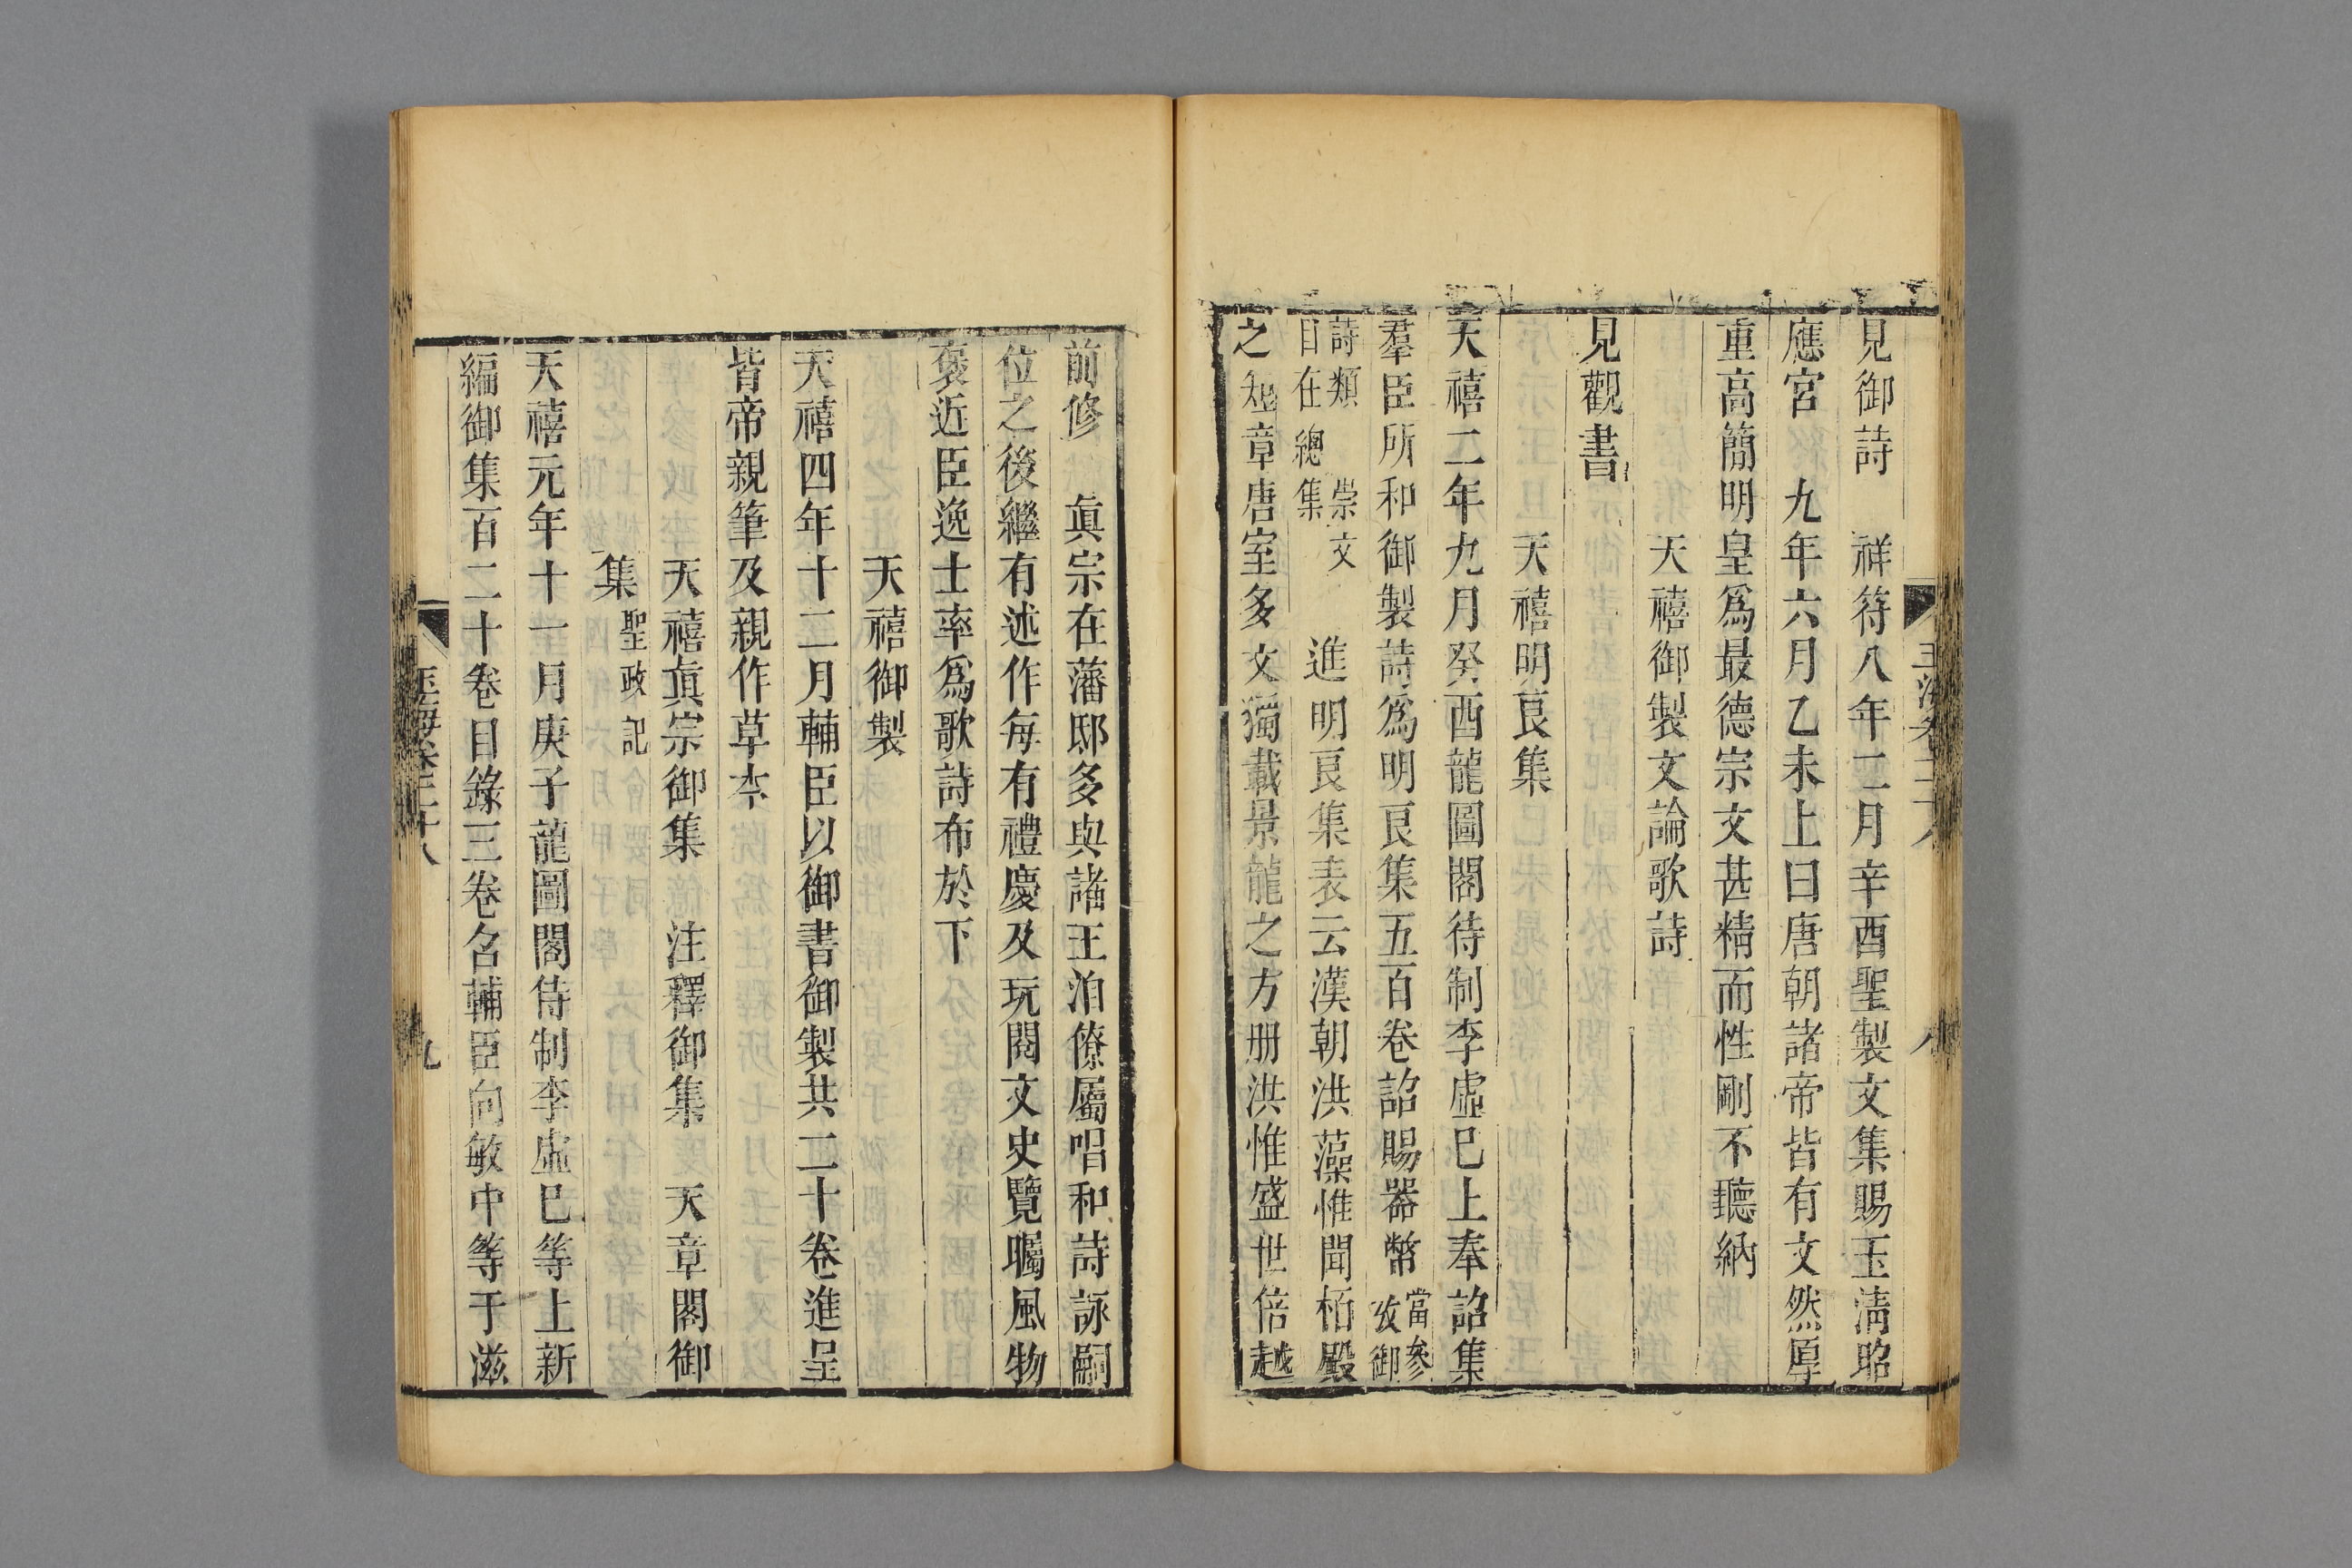 見御詩 祥符八年二月辛酉聖製文集賜玉淸昭
應宮 九年六月乙未上曰唐朝諸帝皆有文然厚
重高簡明皇爲最德宗文甚精而性剛不聽納
天禧御製文論歌詩
見觀書
天禧明良集
天禧二年九月癸酉龍圖閣待制李虛已上奉詔集
羣臣所和御製詩爲明良集五百卷詔賜器幣當參攷御
詩類 崇文目在總集 進明良集表云漢朝洪藻惟聞栢殿
之短章唐室多文獨載景龍之方册洪惟盛世倍越
前修 眞宗在藩邸多與諸王洎僚屬唱和詩詠嗣
位之後繼有述作每有禮慶及玩閱文史覽矚風物
褒近臣逸士率爲歌詩布於下
天禧御製
天禧四年十二月輔臣以御書御製共二十卷進呈
皆帝親筆及親作草本
天禧眞宗御集 注釋御集 天章閣御
集 聖政記
天禧元年十一月庚子龍圖閣待制李虛已等上新
編御集百二十卷目錄三卷名輔臣向敏中等于滋
玉海卷二十八
九